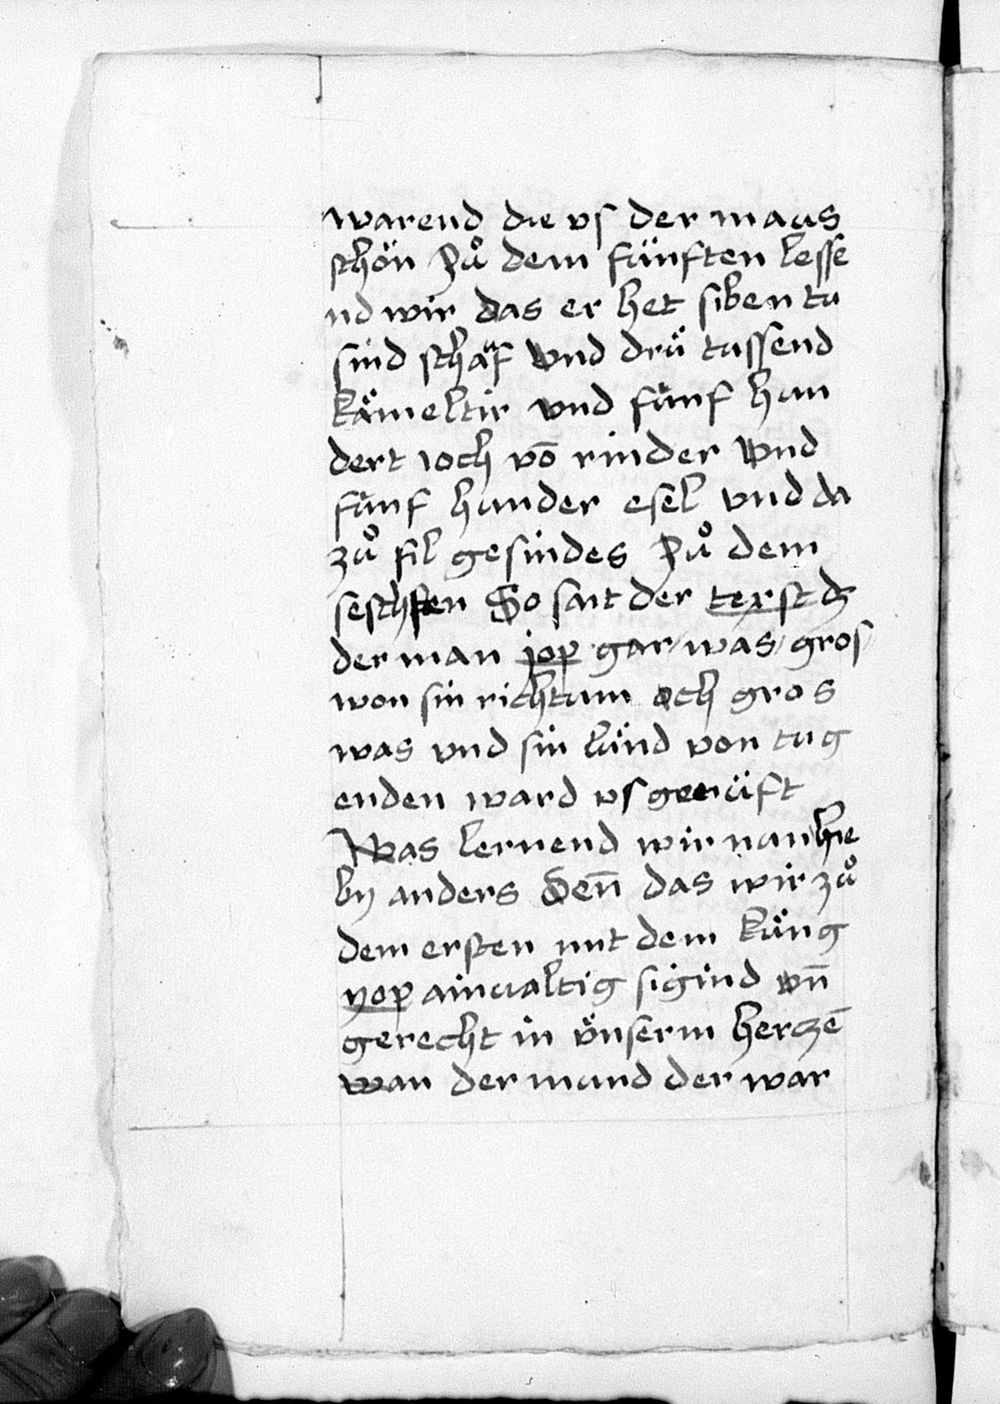 warend die vs der maus
schön Zuͦ dem fünften lesse
nd wir das er het siben tu
sind schäf vnd drü tussend
kämeltir vnd fünf hun
dert ioch vō rinder vnd
fünf hunder esel vnd da
zuͦ fil gesindes Zuͦ dem
seschsten So sait der texst dz
der man jop gar was gros
won sin richtum och gros
was vnd sin lünd von tug
enden ward vsgerüft
Was lernend wir nun hie
by anders Den̄ das wir zuͦ
dem ersten mit dem küng
yop ainualtig sigind vn̄
gerecht in vnserm herczē
wan der mund der war